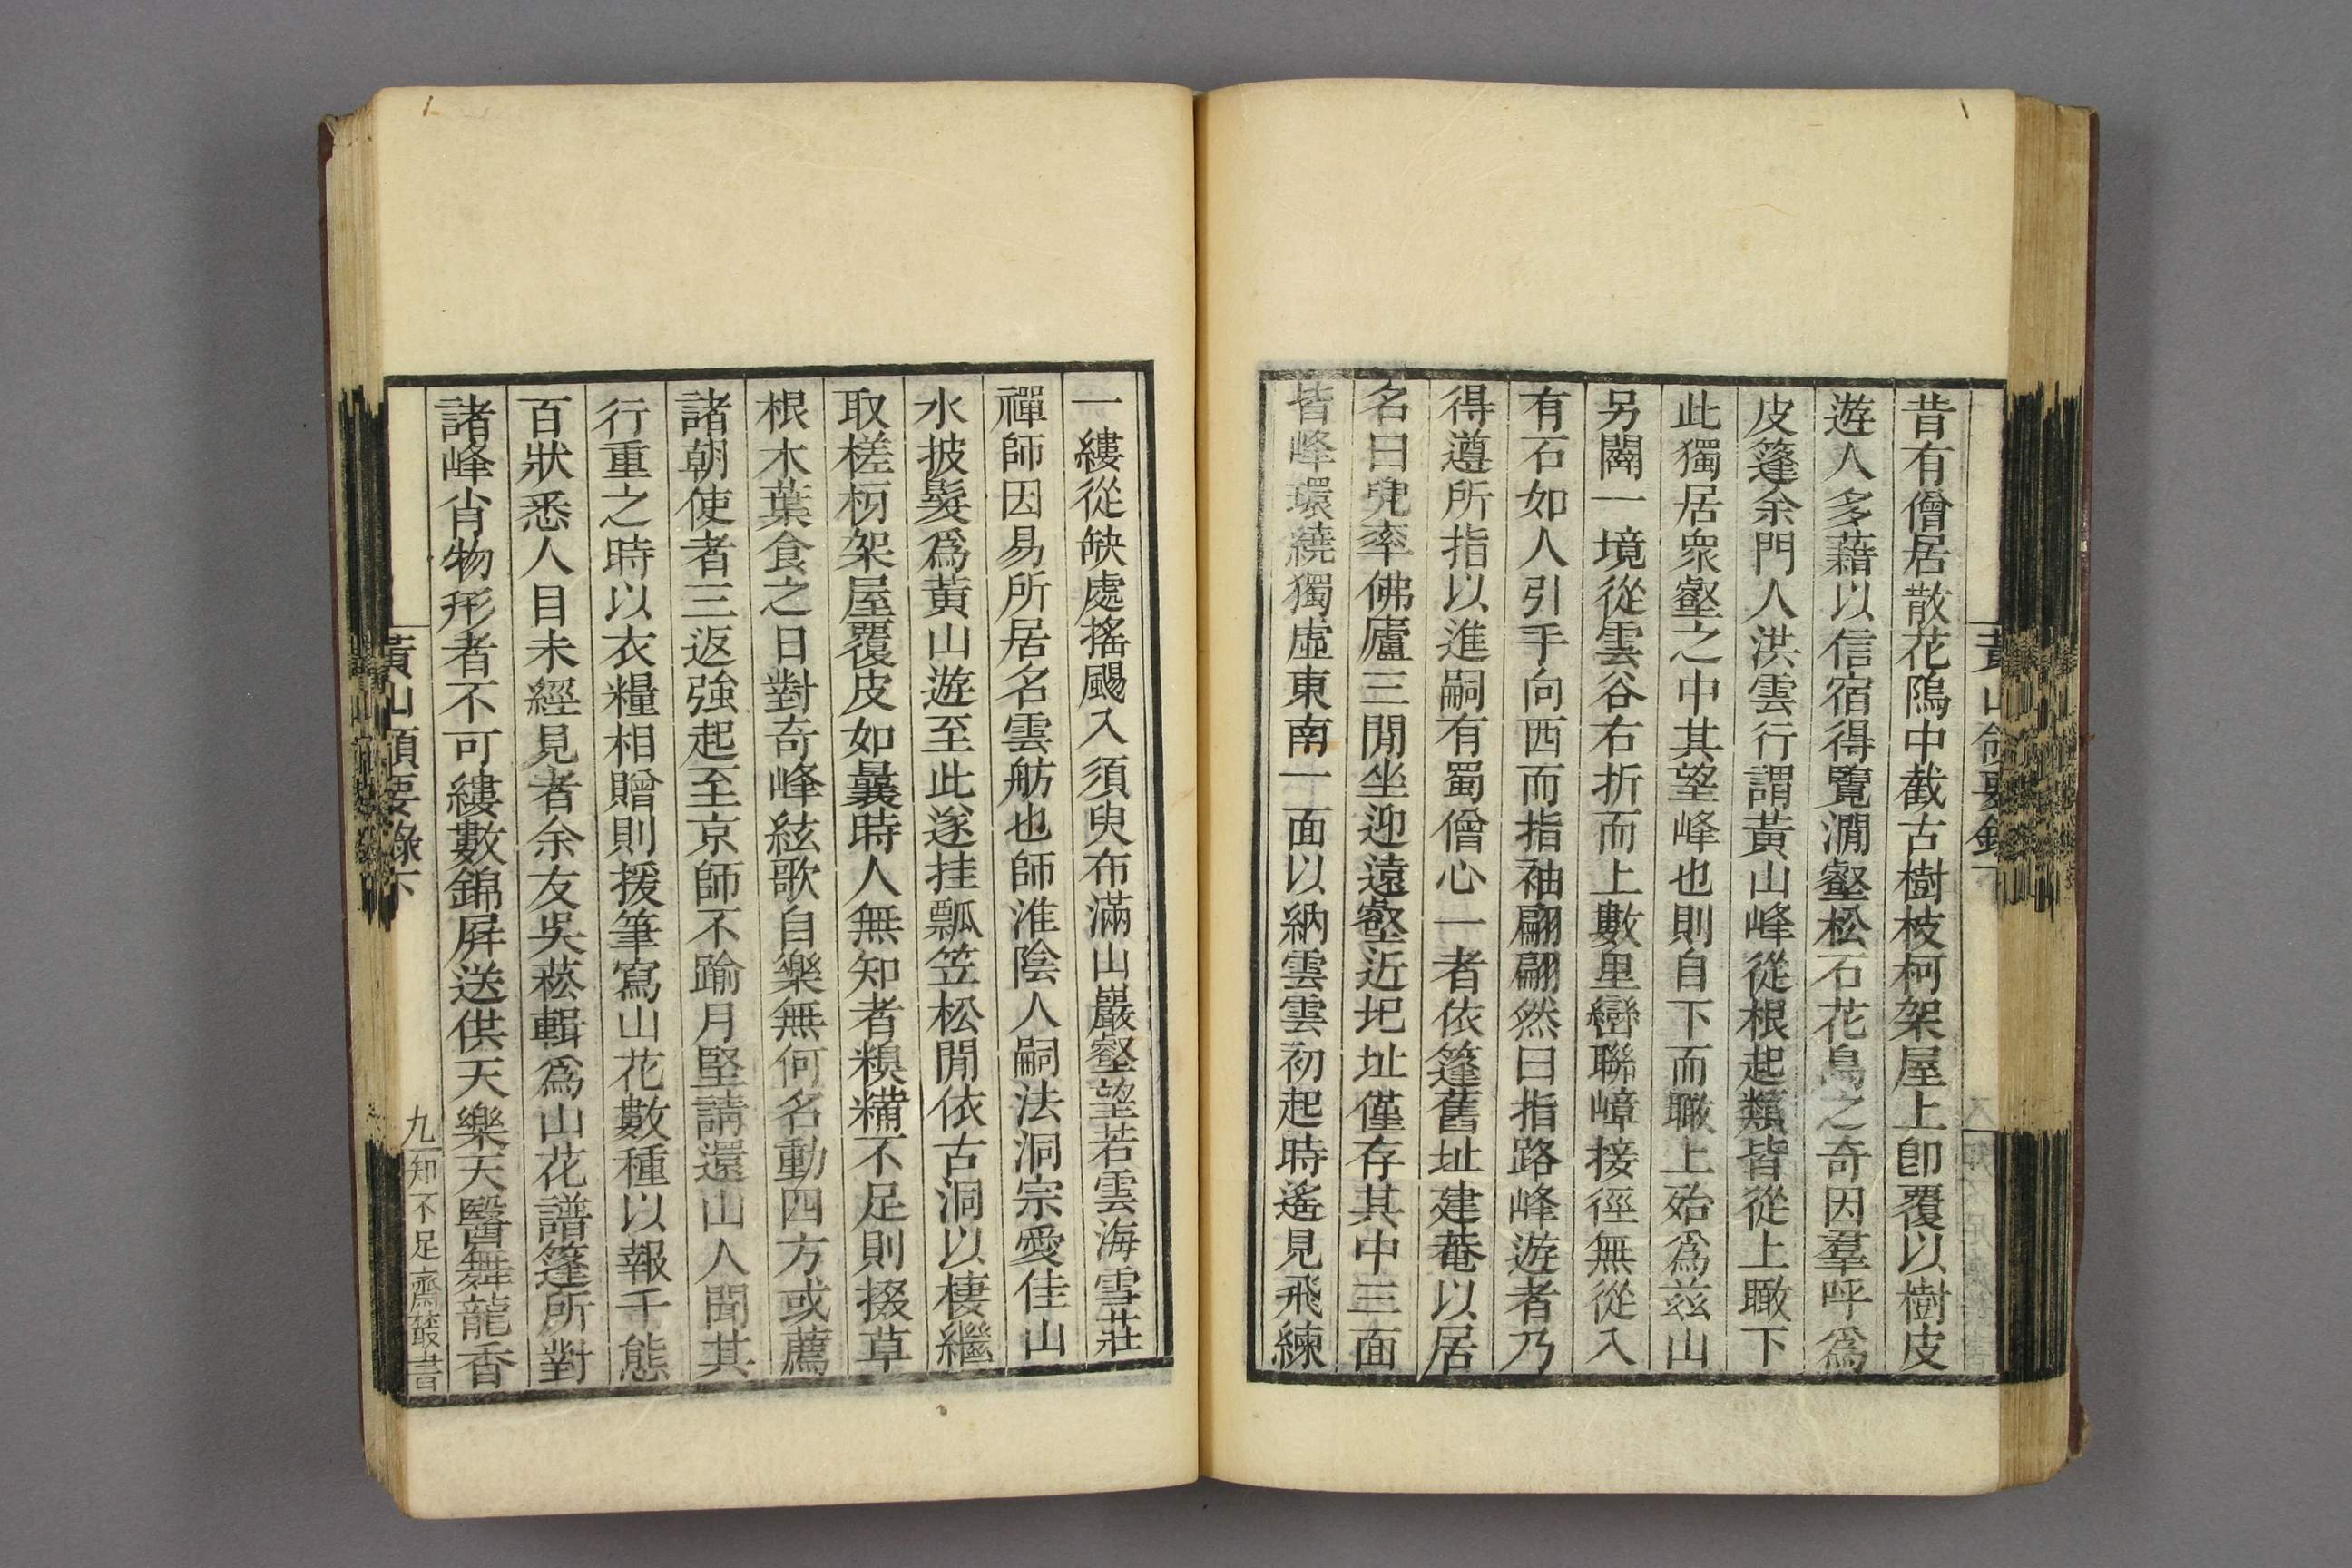 昔有僧居散花塢中截古樹枝柯架屋上卽覆以樹皮
遊人多藉以信宿得覽澗壑松石花鳥之奇因羣呼爲
皮篷余門人洪雲行謂黃山峰從根起類皆從上瞰下
此獨居衆壑之中其望峰也則自下而瞰上殆爲兹山
另闢一境從雲谷右折而上數里巒聯嶂接徑無從入
有石如人引手向西而指袖翩翩然曰指路峰遊者乃
得遵所指以進嗣有蜀僧心一者依篷舊址建菴以居
名曰兜率佛廬三閒坐迎遠壑近圯址僅存其中三面
皆峰環繞獨虛東南一面以納雲雲初起時遙見飛練
一縷從缺處搖颺入須臾布滿山巖壑望若雲海雪莊
禪師因易所居名雲舫也師淮陰人嗣法洞宗愛佳山
水披髮爲黃山遊至此遂挂瓢笠松閒依古洞以棲繼
取槎枒架屋覆皮如曩時人無知者糗糒不足則掇草
根木葉食之日對奇峰絃歌自樂無何名動四方或薦
諸朝使者三返強起至京師不踰月堅請還山人聞其
行重之時以衣糧相贈則援筆寫山花數種以報千態
百狀悉人目未經見者余友吳菘輯爲山花譜篷所對
諸峰肖物形者不可縷數錦屛送供天樂天醫舞龍香
黃山領要錄下
九
知不足齋叢書